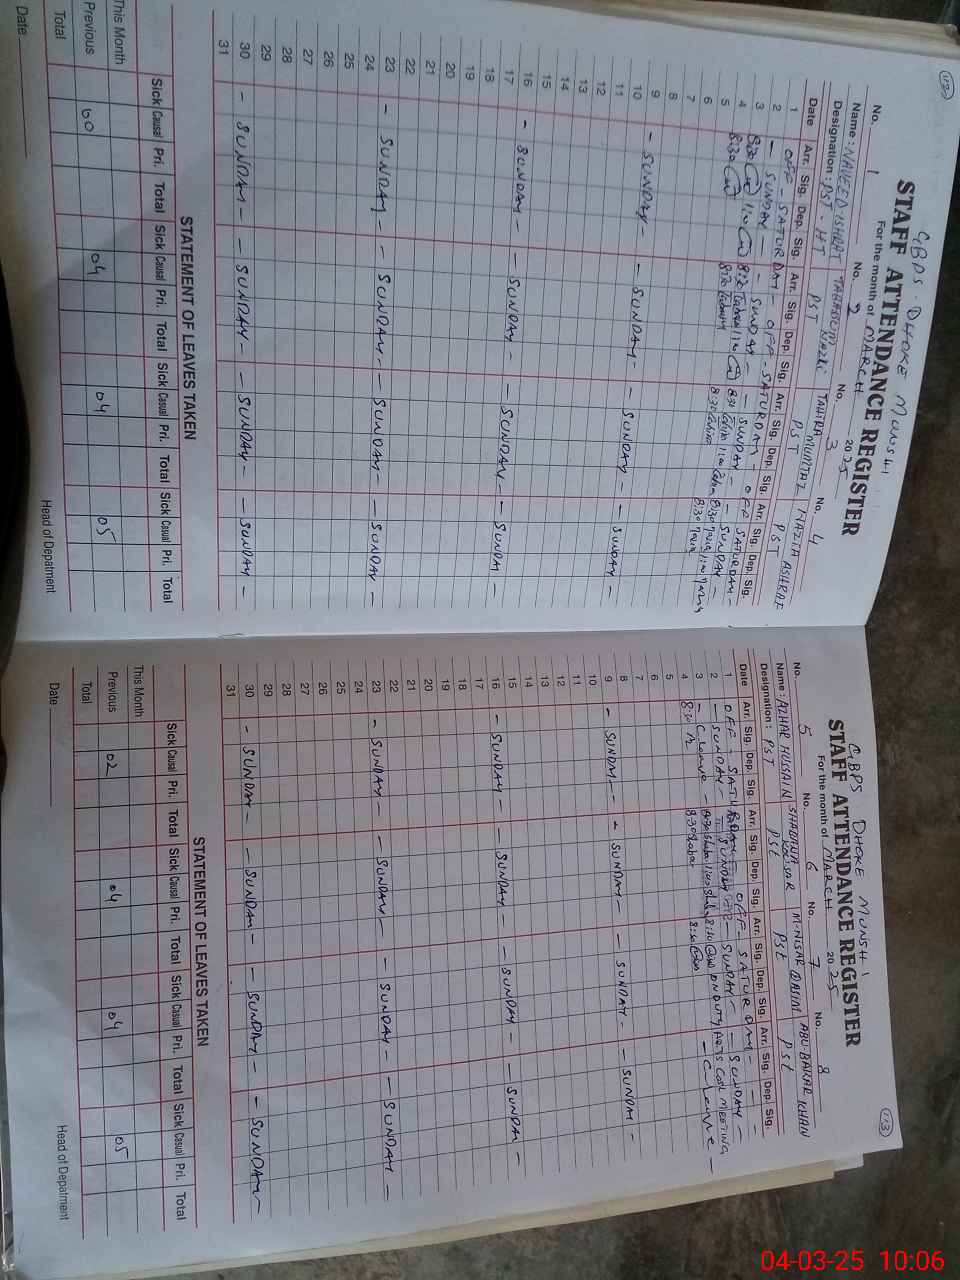 GBPS. DHOKE MUNSHI
STAFF ATTENDANCE REGISTER
For the month of MARCH 2025
No. 1 No. 2 No. 3 No. 4
Name: NAVEED ISHRAT TABASSUM NAZLI TAHIRA MUMTAZ NAZIA ASHRAF
Designation: PST-HT PST PST PST
Date Arr. Sig. Dep. Sig. Arr. Sig. Dep. Sig. Arr. Sig. Dep. Sig. Arr. Sig. Dep. Sig.
1 OFF - SATURDAY - OFF - SATURDAY - OFF SATURDAY -
2 - SUNDAY - - SUNDAY - - SUNDAY - - SUNDAY -
3 8:30 8:30 8:30 8:30
4 8:30 8:30 8:30 8:30
5
6
7
8
9 - SUNDAY - - SUNDAY - - SUNDAY - - SUNDAY -
10
11
12
13
14
15
16 - SUNDAY - - SUNDAY - - SUNDAY - - SUNDAY -
17
18
19
20
21
22
23 - SUNDAY - - SUNDAY - - SUNDAY - - SUNDAY -
24
25
26
27
28
29
30 - SUNDAY - - SUNDAY - - SUNDAY - - SUNDAY -
31
STATEMENT OF LEAVES TAKEN
Sick Causal Pri. Total Sick Causal Pri. Total Sick Casual Pri. Total Sick Casual Pri. Total
This Month
Previous 00 04 04 05
Total
Date Head of Depatment
113
GBPS DHOKE MUNSHI
STAFF ATTENDANCE REGISTER
For the month of MARCH 2025
No. 5 No. 6 No. 7 No. 8
Name: AZHAR HUSSAIN SHABANA KOUSAR M. NISAR QASIM ABU BAKAR KHAN
Designation: PST PST PST PST
Date Arr. Sig. Dep. Sig. Arr. Sig. Dep. Sig. Arr. Sig. Dep. Sig. Arr. Sig. Dep. Sig.
1 OFF - SATURDAY - OFF - SATURDAY -
2 - SUNDAY - SUNDAY - SUNDAY - - SUNDAY -
3 - C leave - 8:30 8:30 ON DUTY MEETING
4 8:30 8:30 8:30 - C leave -
5
6
7
8
9 - SUNDAY - - SUNDAY - - SUNDAY - - SUNDAY -
10
11
12
13
14
15
16 - SUNDAY - - SUNDAY - - SUNDAY - - SUNDAY -
17
18
19
20
21
22
23 - SUNDAY - - SUNDAY - - SUNDAY - - SUNDAY -
24
25
26
27
28
29
30 - SUNDAY - - SUNDAY - - SUNDAY - - SUNDAY -
31
STATEMENT OF LEAVES TAKEN
Sick Causal Pri. Total Sick Causal Pri. Total Sick Casual Pri. Total Sick Casual Pri. Total
This Month
Previous 02 04 04 05
Total
Date Head of Depatment
04-03-25 10:06